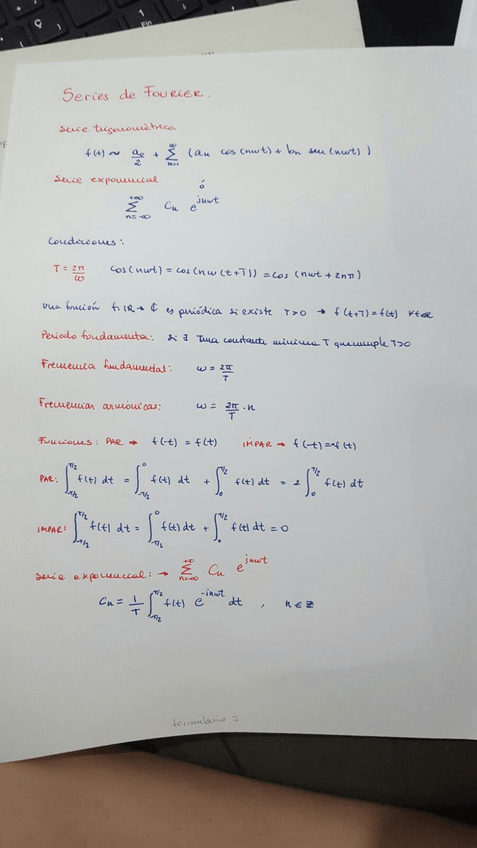 Series de FOURIER.
Serie trigonométrica
f(t) ~ a₀/2 + ∑_{n=1}^{∞} (an cos(nωt) + bn sen(nωt))
Serie exponencial
ó
∑_{n=-∞}^{+∞} Cn e^{jnωt}
Condiciones:
T = 2π/ω cos(nωt) = cos(nω(t+T)) = cos(nωt + 2nπ)
Una función f: ℝ → ℂ es periódica si existe T>0 → f(t+T) = f(t) ∀t∈ℝ
Periodo fundamental: si ∃ una constante mínima T que cumple T>0
Frecuencia fundamental: ω = 2π/T
Frecuencias armónicas: ω = 2π/T · n
Funciones: PAR → f(-t) = f(t) IMPAR → f(-t) = -f(t)
PAR: ∫_{-T/2}^{T/2} f(t) dt = ∫_{-T/2}^{0} f(t) dt + ∫_{0}^{T/2} f(t) dt = 2 ∫_{0}^{T/2} f(t) dt
IMPAR: ∫_{-T/2}^{T/2} f(t) dt = ∫_{-T/2}^{0} f(t) dt + ∫_{0}^{T/2} f(t) dt = 0
Serie exponencial: → ∑_{n=-∞}^{+∞} Cn e^{jnωt}
Cn = 1/T ∫_{-T/2}^{T/2} f(t) e^{-jnωt} dt , n ∈ ℤ
formulario 7